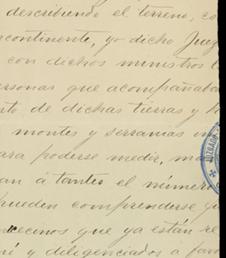 describiendo el terreno, es
continente, yo dicho Juez
con dichos ministros
ersonas que acompañaba
to de dichas tierras y
montes y serranias
ara poderse medir,
an á tanteo el número
pueden comprenderse
vecinos que ya están re
é y diligenciados á
JUZGADO